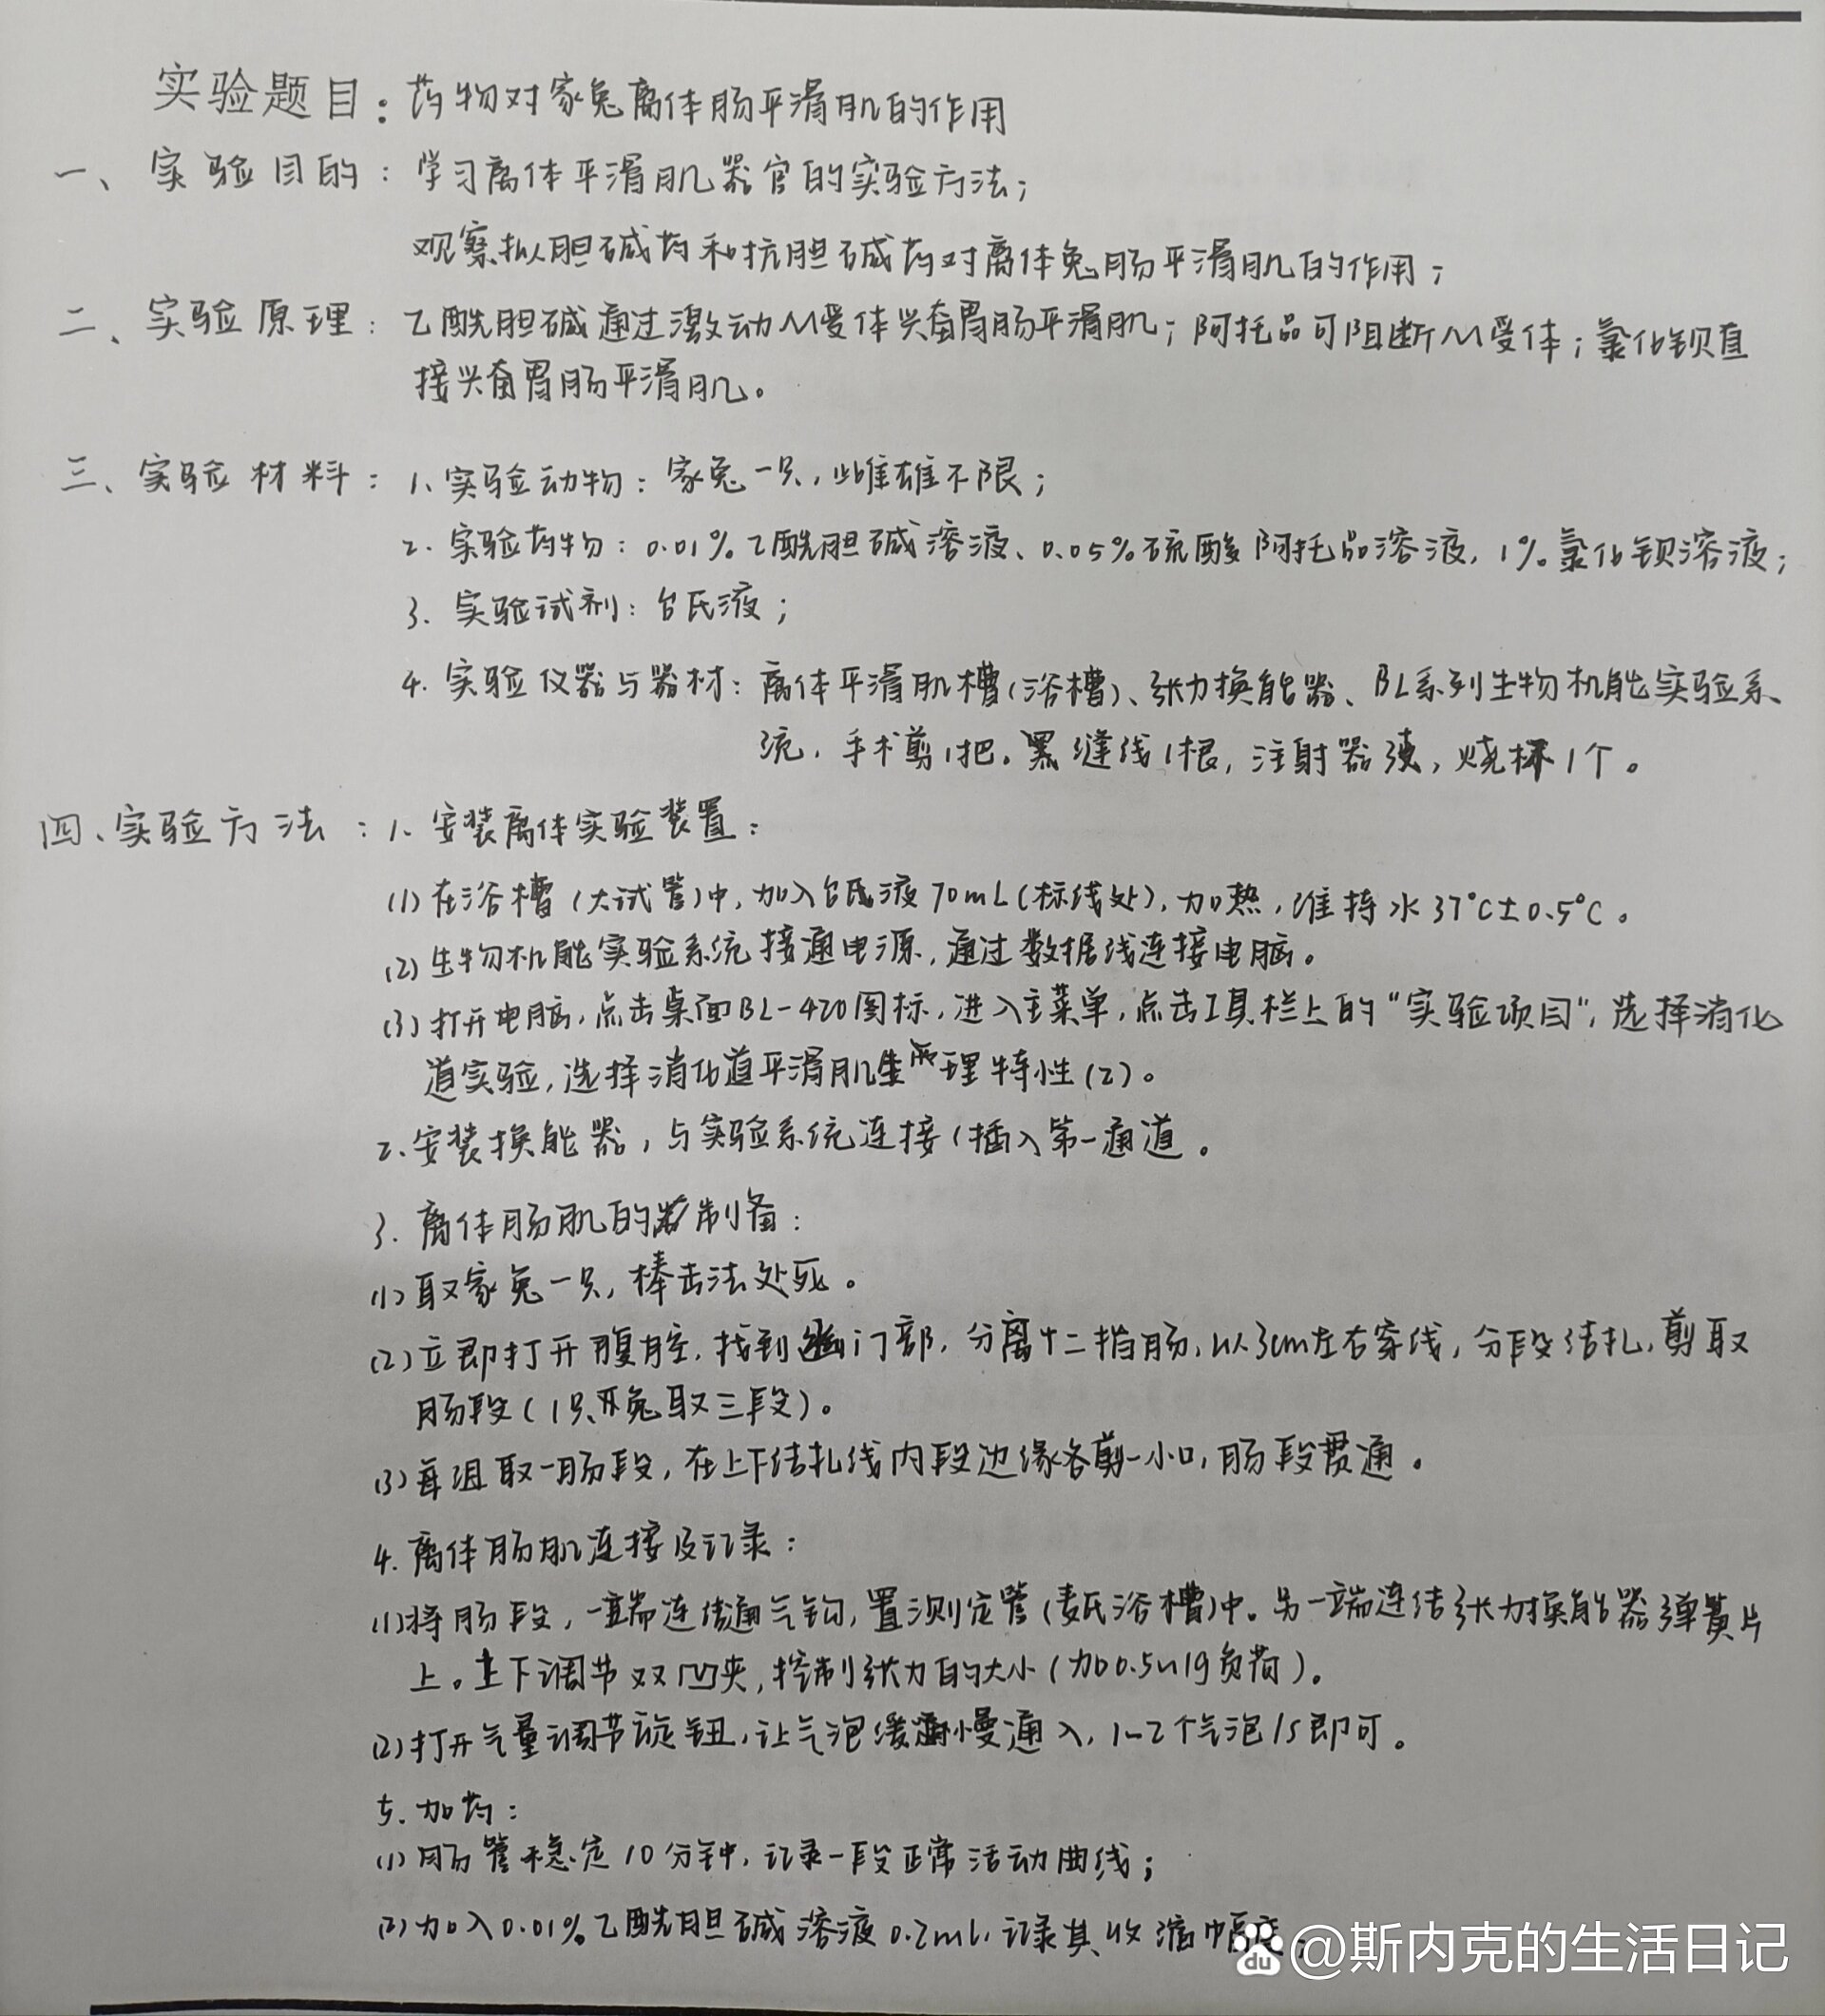 实验题目：药物对家兔离体肠平滑肌的作用
一、实验目的：学习离体平滑肌器官的实验方法；
观察拟胆碱药和抗胆碱药对离体兔肠平滑肌的作用；
二、实验原理：乙酰胆碱通过激动M受体兴奋胃肠平滑肌；阿托品可阻断M受体；氯化钡直
接兴奋胃肠平滑肌。
三、实验材料：1、实验动物：家兔一只，雌雄不限；
2. 实验药物：0.01%乙酰胆碱溶液、0.05%硫酸阿托品溶液，1%氯化钡溶液；
3. 实验试剂：台氏液；
4. 实验仪器与器材：离体平滑肌槽(浴槽)、张力换能器、BL系列生物机能实验系
统，手术剪1把。黑缝线1根，注射器，烧杯1个。
四、实验方法：1、安装离体实验装置：
(1)在浴槽(大试管)中，加入台氏液70mL(标线处)，加热，维持水37°C±0.5°C。
(2)生物机能实验系统接通电源，通过数据线连接电脑。
(3)打开电脑，点击桌面BL-420图标，进入主菜单，点击工具栏上的“实验项目”，选择消化
道实验，选择消化道平滑肌生理特性(2)。
2、安装换能器，与实验系统连接(插入第一通道。
3. 离体肠肌的制备：
(1)取家兔一只，棒击法处死。
(2)立即打开腹腔，找到幽门部，分离十二指肠，以3cm左右穿线，分段结扎，剪取
肠段(1只兔取三段)。
(3)每组取一肠段，在上下结扎线内段边缘各剪一小口，肠段贯通。
4. 离体肠肌连接及记录：
(1)将肠段，一端连结通气钩，置测定管(麦氏浴槽)中。另一端连结张力换能器弹簧片
上。上下调节双凹夹，控制张力的大小(加0.5~1g负荷)。
(2)打开气量调节旋钮，让气泡缓慢通入，1~2个气泡/s即可。
5. 加药：
(1)肠管稳定10分钟，记录一段正常活动曲线；
(2)加入0.01%乙酰胆碱溶液0.2ml，记录其收缩幅度；
du @斯内克的生活日记